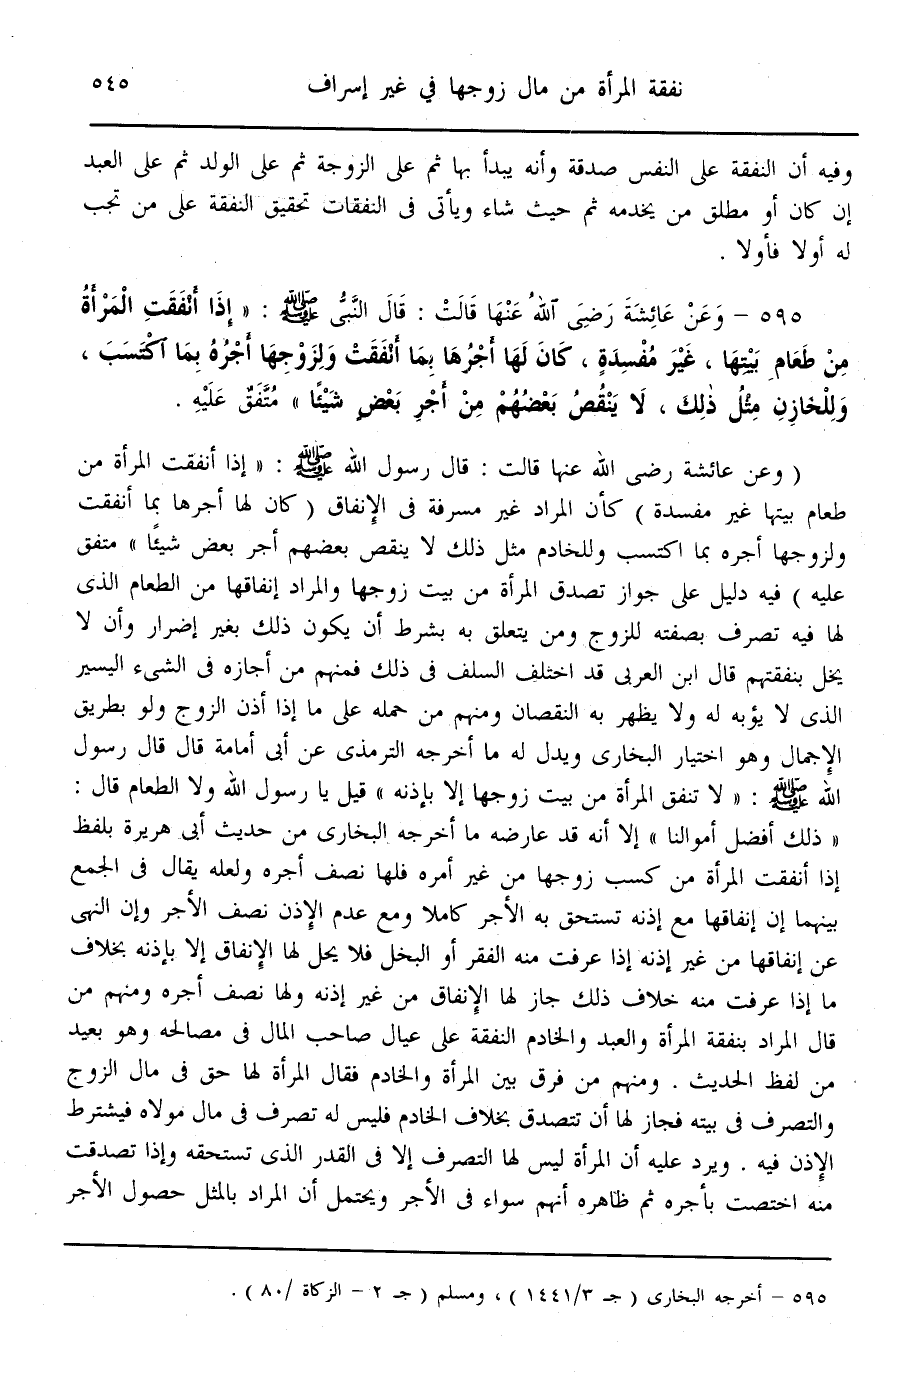 نفقة المرأة من مال زوجها في غير إسراف ٥٤٥
وفيه أن النفقة على النفس صدقة وأنه يبدأ بها ثم على الزوجة ثم على الولد ثم على العبد
إن كان أو مطلق من يخدمه ثم حيث شاء ويأتى فى النفقات تحقيق النفقة على من تجب
له أولا فأولا .
٥٩٥ - وَعَنْ عَائِشَةَ رَضِىَ ٱللهُ عَنْهَا قَالَتْ : قَالَ النَّبِىُّ ﷺ : « إِذَا أَنْفَقَتِ الْمَرْأَةُ
مِنْ طَعَامِ بَيْتِهَا ، غَيْرَ مُفْسِدَةٍ ، كَانَ لَهَا أَجْرُهَا بِمَا أَنْفَقَتْ وَلِزَوْجِهَا أَجْرُهُ بِمَا ٱكْتَسَبَ ،
وَلِلْخَازِنِ مِثْلُ ذٰلِكَ ، لَا يَنْقُصُ بَعْضُهُمْ مِنْ أَجْرِ بَعْضٍ شَيْئًا » مُتَّفَقٌ عَلَيْهِ .
( وعن عائشة رضى الله عنها قالت : قال رسول الله ﷺ : « إذا أنفقت المرأة من
طعام بيتها غير مفسدة ) كأن المراد غير مسرفة فى الإنفاق ( كان لها أجرها بما أنفقت
ولزوجها أجره بما اكتسب وللخادم مثل ذلك لا ينقص بعضهم أجر بعض شيئًا » متفق
عليه ) فيه دليل على جواز تصدق المرأة من بيت زوجها والمراد إنفاقها من الطعام الذى
لها فيه تصرف بصفته للزوج ومن يتعلق به بشرط أن يكون ذلك بغير إضرار وأن لا
يخل بنفقتهم قال ابن العربى قد اختلف السلف فى ذلك فمنهم من أجازه فى الشىء اليسير
الذى لا يؤبه له ولا يظهر به النقصان ومنهم من حمله على ما إذا أذن الزوج ولو بطريق
الإجمال وهو اختيار البخارى ويدل له ما أخرجه الترمذى عن أبى أمامة قال قال رسول
الله ﷺ : « لا تنفق المرأة من بيت زوجها إلا بإذنه » قيل يا رسول الله ولا الطعام قال :
« ذلك أفضل أموالنا » إلا أنه قد عارضه ما أخرجه البخارى من حديث أبى هريرة بلفظ
إذا أنفقت المرأة من كسب زوجها من غير أمره فلها نصف أجره ولعله يقال فى الجمع
بينهما إن إنفاقها مع إذنه تستحق به الأجر كاملا ومع عدم الإذن نصف الأجر وإن النهى
عن إنفاقها من غير إذنه إذا عرفت منه الفقر أو البخل فلا يحل لها الإنفاق إلا بإذنه بخلاف
ما إذا عرفت منه خلاف ذلك جاز لها الإنفاق من غير إذنه ولها نصف أجره ومنهم من
قال المراد بنفقة المرأة والعبد والخادم النفقة على عيال صاحب المال فى مصالحه وهو بعيد
من لفظ الحديث . ومنهم من فرق بين المرأة والخادم فقال المرأة لها حق فى مال الزوج
والتصرف فى بيته فجاز لها أن تتصدق بخلاف الخادم فليس له تصرف فى مال مولاه فيشترط
الإذن فيه . ويرد عليه أن المرأة ليس لها التصرف إلا فى القدر الذى تستحقه وإذا تصدقت
منه اختصت بأجره ثم ظاهره أنهم سواء فى الأجر ويحتمل أن المراد بالمثل حصول الأجر
٥٩٥ - أخرجه البخارى ( جـ ١٤٤١/٣ ) ، ومسلم ( جـ ٢ - الزكاة /٨٠ ) .